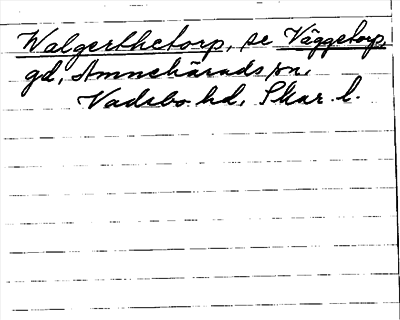 Walgerthetorp, se Väggetorp,
gd, Amnehärads sn.
Vadsbo hd. Skar. l.